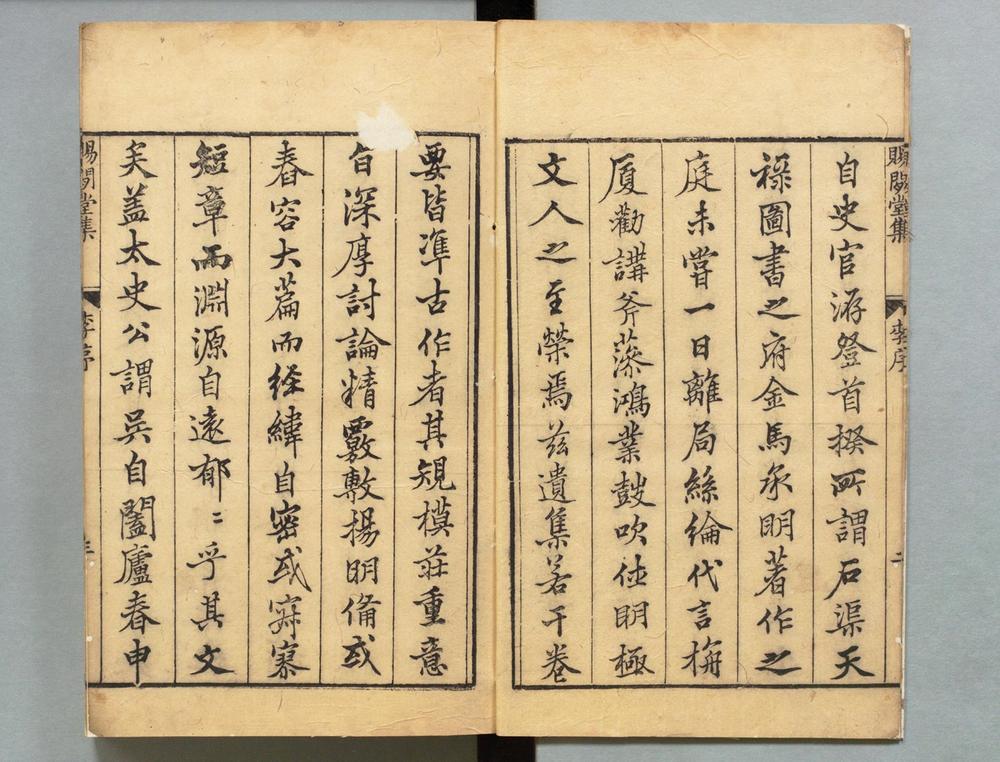 賜閒堂集
李序
二
自史官游登首揆所謂石渠天
祿圖書之府金馬承明著作之
庭未嘗一日離局絲綸代言旃
厦勸講斧藻鴻業鼓吹休明極
文人之至榮焉兹遺集若干卷
要皆準古作者其規模莊重意
旨深厚討論精覈敷揚明備或
舂容大篇而経緯自密或寂寥
短章而淵源自遠郁〻乎其文
矣蓋太史公謂吳自闔廬春申
賜閒堂集
李序
三